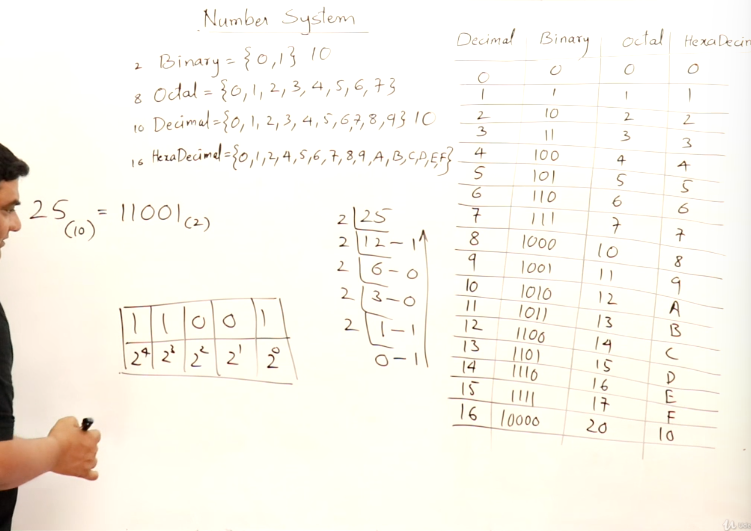 Number System
2 Binary = {0,1} 10
8 Octal = {0,1,2,3,4,5,6,7}
10 Decimal = {0,1,2,3,4,5,6,7,8,9} 10
16 HexaDecimal = {0,1,2,4,5,6,7,8,9,A,B,C,D,E,F}
25(10) = 11001(2)
1 1 0 0 1
2⁴ 2³ 2² 2¹ 2⁰
2 25
2 12 - 1
2 6 - 0
2 3 - 0
2 1 - 1
0 - 1
Decimal Binary Octal HexaDecim
0 0 0 0
1 1 1 1
2 10 2 2
3 11 3 3
4 100 4 4
5 101 5 5
6 110 6 6
7 111 7 7
8 1000 10 8
9 1001 11 9
10 1010 12 A
11 1011 13 B
12 1100 14 C
13 1101 15 D
14 1110 16 E
15 1111 17 F
16 10000 20 10